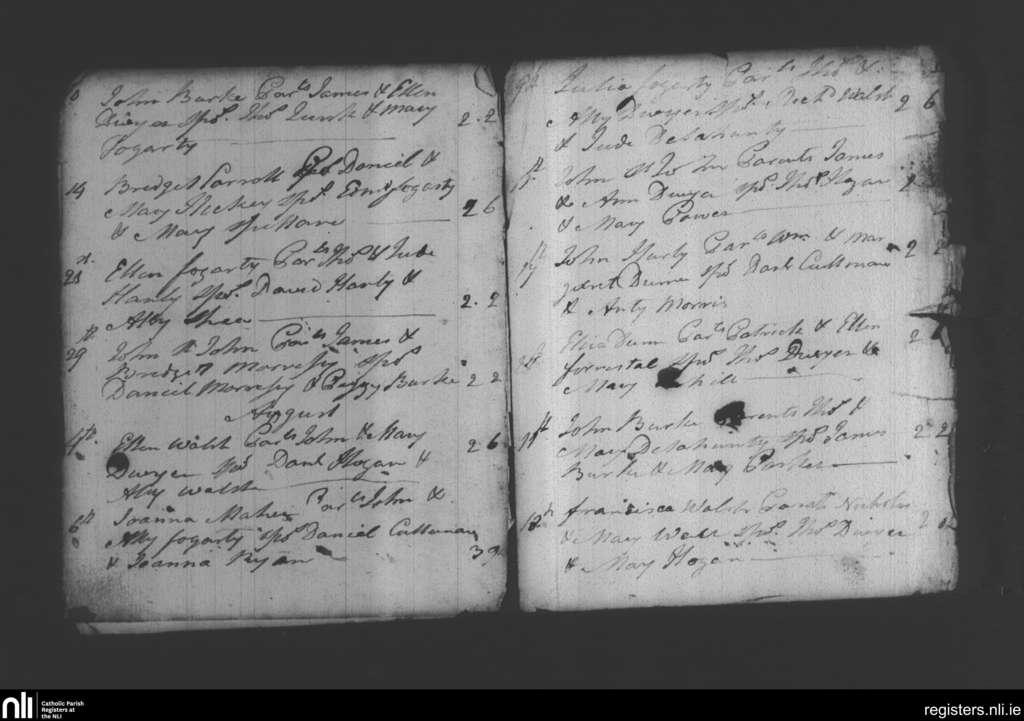 John Burke Par.ts James & Ellen
Dwyer Spo.r Tho.s & Mary 2.2
Fogarty
19 Bridget Carroll Daniel &
Mary Hickey Spo.r Edm.d Fogarty 2 6
& Mary
21st Ellen Fogarty Par.ts Tho.s & Jude
Hanly Spo.r David Hanly & 2.2
Ally Shea
29 John St John Par.ts James &
Bridget Morrissy Spo.r
Daniel Morrissy & Peggy Burke 2 2
August
4th Ellen Walsh Par.ts John & Mary
Dwyer Spo.r Danl Hogan & 2 6
Ally Walsh
6th Joanna Maher Par.ts John &
Ally Fogarty Spo.r Daniel Cullunan
& Joanna Ryan 3 9
9th Julia Fogarty Par.ts Tho.s &
Ally Dwyer Spo.r Mich.l Walsh 2 6
& Jude Delahunty
John Parents James
& Ann Dwyer Spo.r Tho.s Hogan
& Mary Power
John Par.ts Wm. & Mar
garet Dunn Spo.r Danl Cullunan 2 2
& Anty Morris
Eliza Dunn Par.ts Patrick & Ellen
Forrestal Spo.r Tho.s Dwyer & 2
Mary
John Burke Parents Tho.s &
Mary Delahunty Spo.r James 2 2
Burke & Mary Parker
Francisca Walsh Parents Nicholas
& Mary Wall Spo.r Tho.s Dwyer 2
& Mary Hogan
nli Catholic Parish
Registers at
the NLI
registers.nli.ie